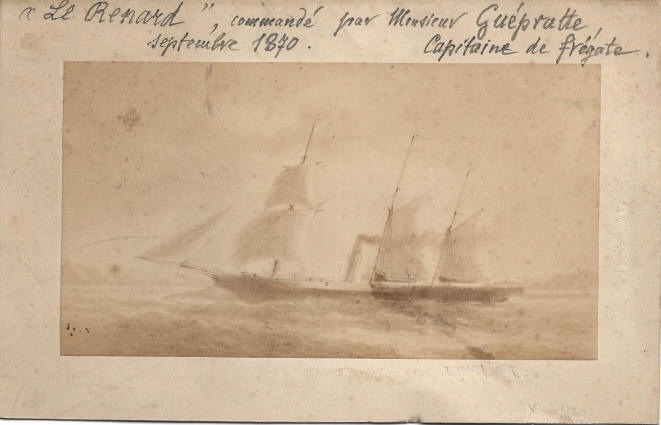 « Le Renard ", commandé par Monsieur Guépratte,
septembre 1870. Capitaine de frégate.